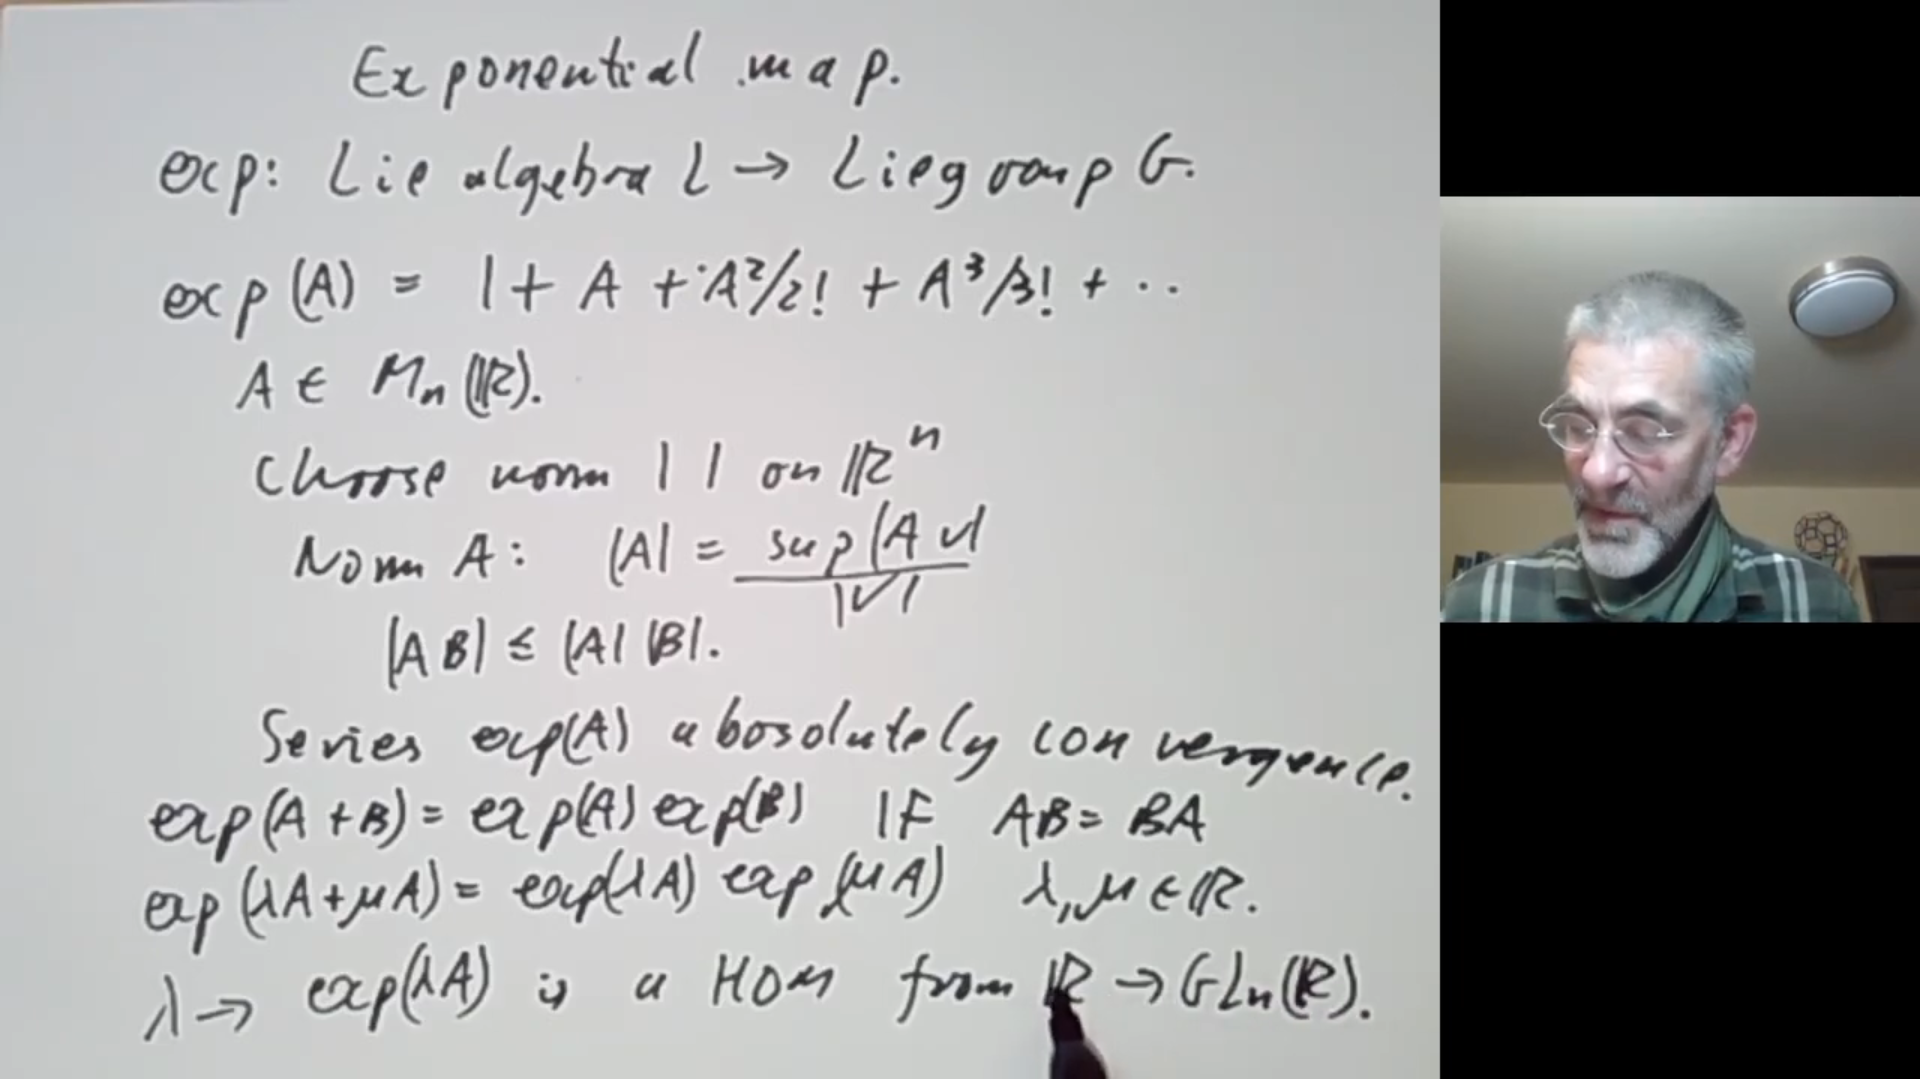 Exponential map.
exp: Lie algebra L → Lie group G.
exp(A) = 1 + A + A²/2! + A³/3! + ..
A ∈ Mn(ℝ).
Choose norm | | on ℝⁿ
Norm A: |A| = sup |Av| / |v|
|AB| ≤ |A| |B|.
Series exp(A) abosolutely convergence.
exp(A+B) = exp(A) exp(B) IF AB = BA
exp(λA+μA) = exp(λA) exp(μA) λ,μ ∈ ℝ.
λ → exp(λA) is a HOM from ℝ → GLn(ℝ).